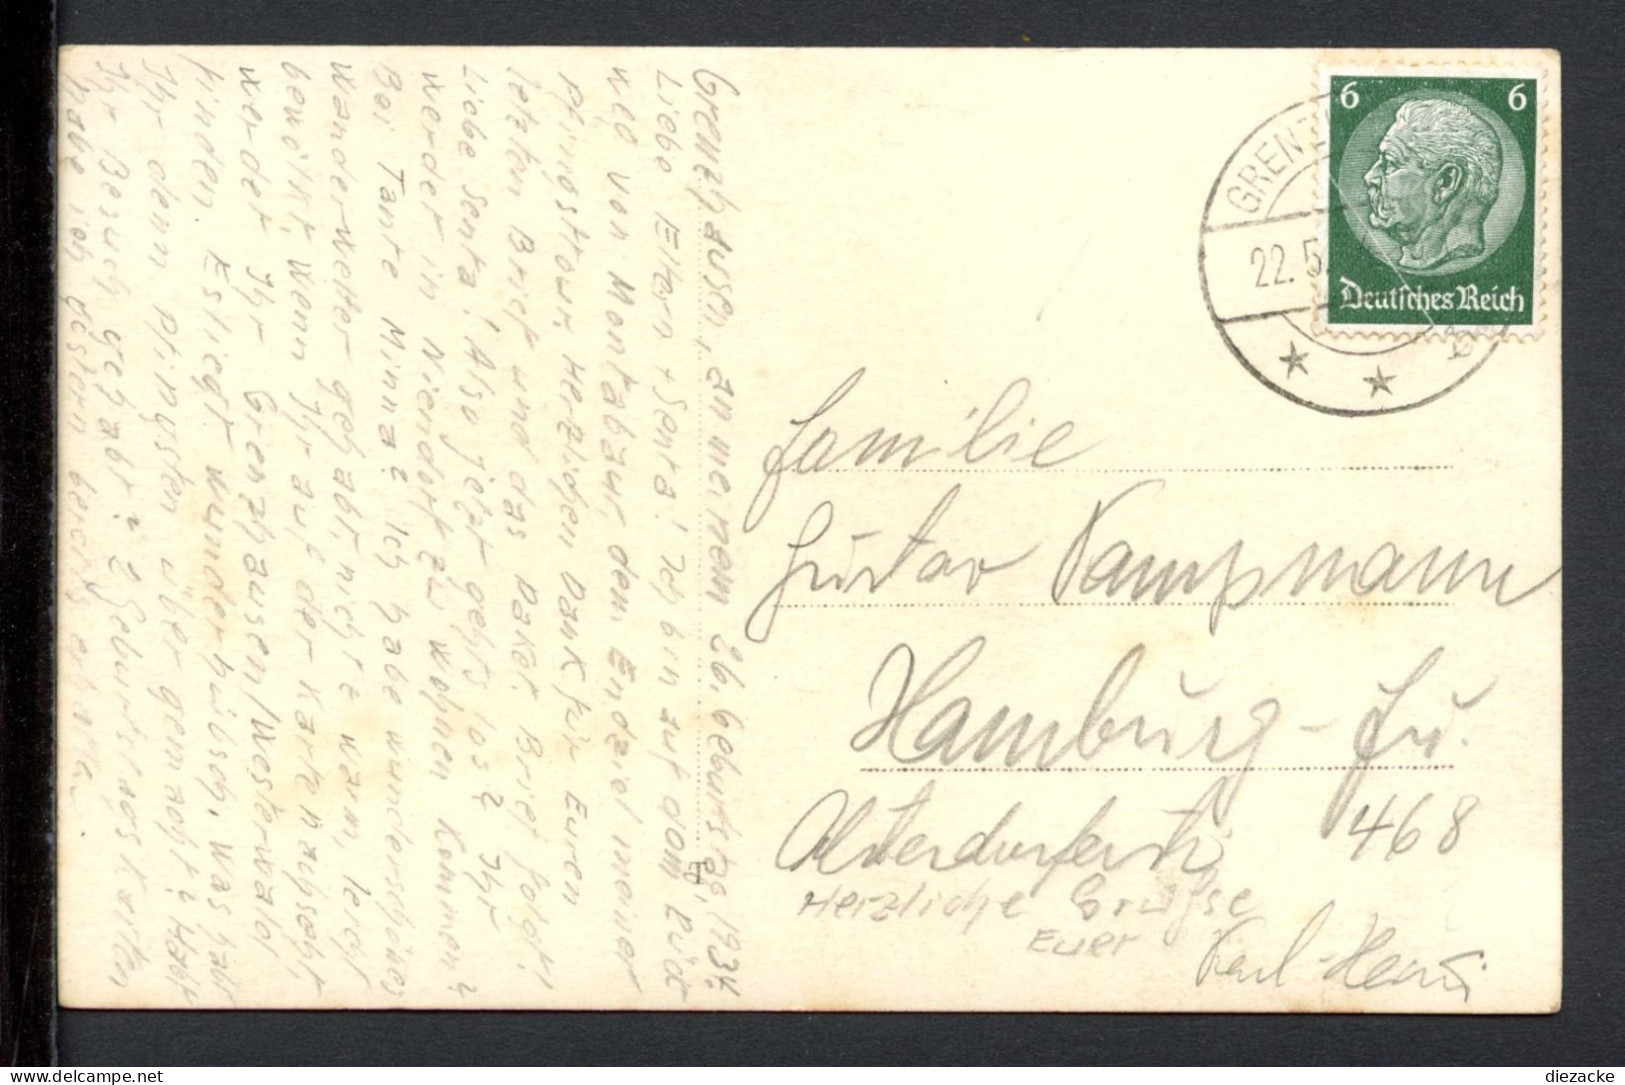 Grenzhausen, an meinem 26. Geburtstag, 1934.
Liebe Eltern + Senta! Ich bin auf dem Rück
weg von Montabaur, dem Endziel meiner
Pfingsttour. Herzlichen Dank für Euren
letzten Brief und das Paket. Brief folgt!
Liebe Senta! Also jetzt gehts los? Ihr
werdet in Niendorf zu wohnen kommen?
Bei Tante Minna? Ich habe wunderschönes
Wanderwetter gehabt, nicht z warm, leicht
bewölkt. Wenn Ihr auf der Karte nachseht,
werdet Ihr Grenzhausen/Westerwald
finden. Es liegt wunderhübsch. Was habt
Ihr denn Pfingsten über gemacht? Habt
Ihr Besuch gehabt? 2 Geburtstagskarten
habe ich gestern bereits erhalten.
6 6
Deutsches Reich
GRENZ
22.5.
Familie
Gustav Kampmann
Hamburg-Fu.
468
Herzliche Grüsse
Euer
Karl-Heinz
diezacke